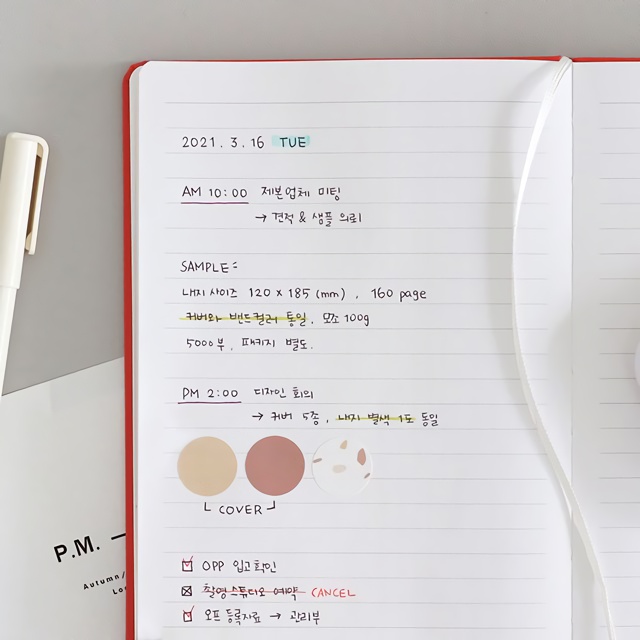 2021. 3. 16 TUE
AM 10:00 제본업체 미팅
→ 견적 & 샘플 의뢰
SAMPLE:
내지 사이즈 120 x 185 (mm), 160 page
커버와 밴드컬러 통일, 모조 100g
5000부, 패키지 별도.
PM 2:00 디자인 회의
→ 커버 5종, 내지 별색 1도 동일
COVER
OPP 입고확인
촬영 스튜디오 예약 CANCEL
오프 등록자료 → 관리부
P.M. —
Autumn/